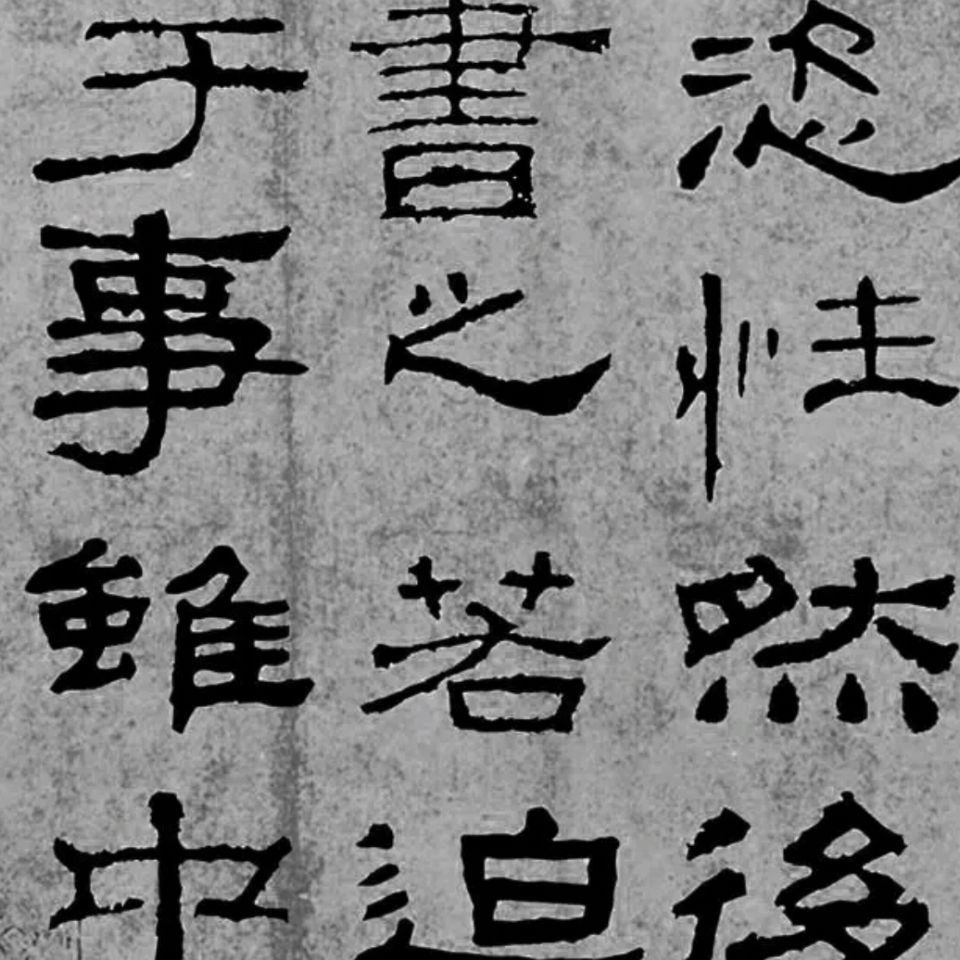 恣性然後
書之若迫
于事雖中